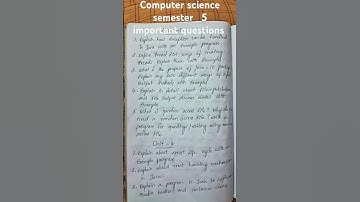 Computer science
semester_5
important questions
1. Explain how exception can be handled
in Java with an example program
2. Define Thread? Two ways of creating
threads explain them with Example?
3. What is the purpose of Java-io package
Explain any two different ways of
output methods with Example?
4. Explain in detail about
and file output stream classes with
Example
5. What is random access file? Why do we
need a random access file? with
program for reading/writing using random
access file.
Unit - 4
1. Explain about applet life cycle with
Example program
2. Explain about event handling mechanism
in Java.
3. Explain a program in Java to
radio button and container class